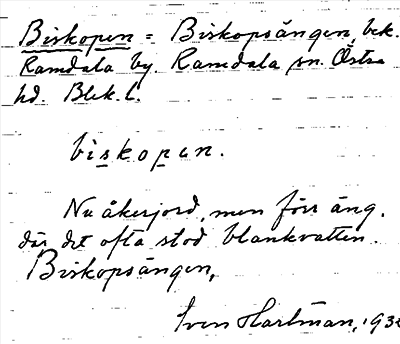 Biskopen = Biskopsängen, bek.
Ramdala by. Ramdala sn. Östra
hd. Blek. l.
biskopen.
Nu åkerjord, men förr äng,
där det ofta stod blankvatten.
Biskopsängen,
Sven Hartman, 193